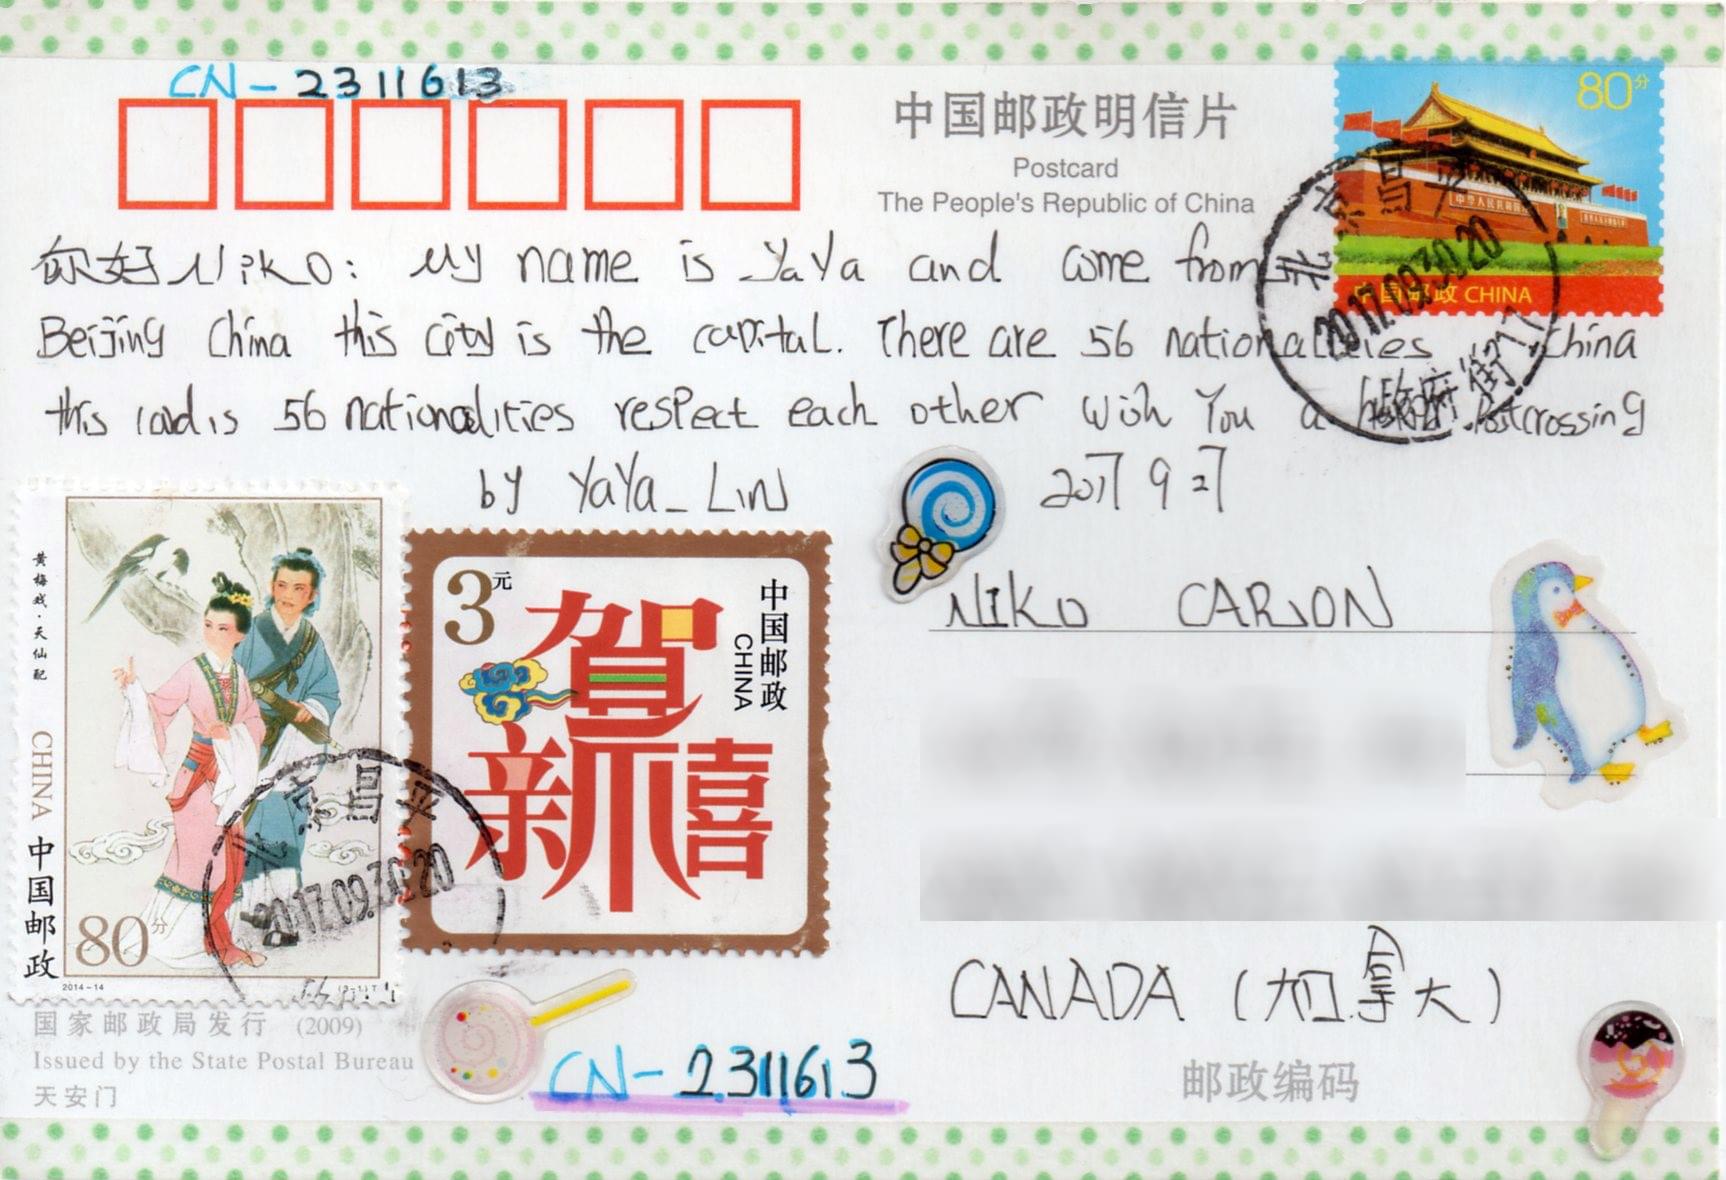 CN-2311613
中国邮政明信片
Postcard
The People's Republic of China
80分
中华人民共和国
中国邮政 CHINA
北京昌平
2017.09.30.20
府街
你好 Niko: My name is YaYa and come from
Beijing China this city is the capital. There are 56 nationalities China
this is 56 nationalities respect each other wish You a Postcrossing
by YaYa_Lin
2017 9 27
黄梅戏·天仙配
CHINA 中国邮政
80分
2014-14
(3-1)T
3元
中国邮政
CHINA
贺新禧
北京昌平
2017.09.30.20
NIKO CARION
CANADA (加拿大)
国家邮政局发行 (2009)
Issued by the State Postal Bureau
天安门
CN-2311613
邮政编码